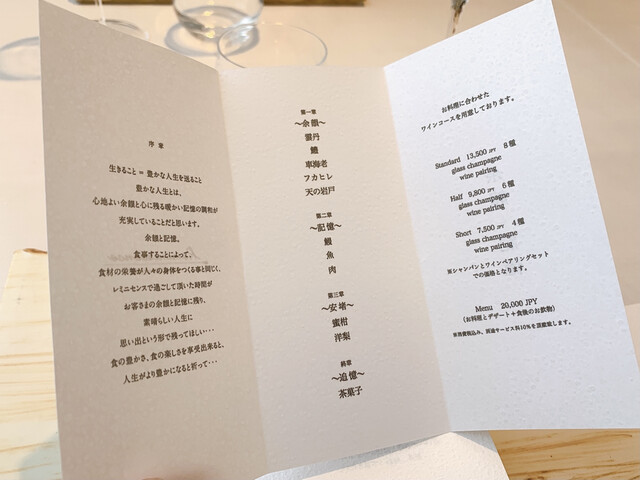 序 章
生きること = 豊かな人生を送ること
豊かな人生とは、
心地よい余韻と心に残る暖かい記憶の調和が
充実していることだと思います。
余韻と記憶。
食事することによって、
食材の栄養が人々の身体をつくる事と同じく、
レミニセンスで過ごして頂いた時間が
お客さまの余韻と記憶に残り、
素晴らしい人生に
思い出という形で残ってほしい・・・
食の豊かさ、食の楽しさを享受出来ると、
人生がより豊かになると祈って・・・
第一章
〜余韻〜
雲丹
鱧
車海老
フカヒレ
天の岩戸
第二章
〜記憶〜
鰻
魚
肉
第三章
〜安堵〜
蜜柑
洋梨
終章
〜追憶〜
茶菓子
お料理に合わせた
ワインコースを用意しております。
Standard 13,500 JPY 8種
glass champagne
wine pairing
Half 9,800 JPY 6種
glass champagne
wine pairing
Short 7,500 JPY 4種
glass champagne
wine pairing
※シャンパンとワインペアリングセット
での価格となります。
Menu 20,000 JPY
(お料理とデザート+食後のお飲物)
※消費税込み、別途サービス料10%を頂戴致します。